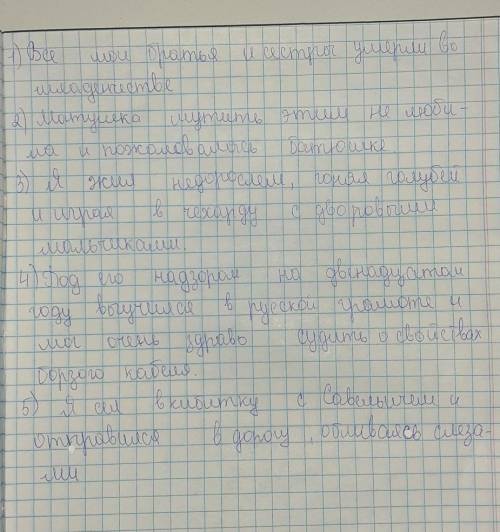 1) Все мои братья и сестры умерли во
младенчестве
2) Матушка шутить этим не люби-
ла и пожаловалась батюшке
3) Я жил недорослем, гоняя голубей
и играя в чехарду с дворовыми
мальчиками.
4) Под его надзором на двенадцатом
году выучился в русской грамоте и
мог очень здраво судить о свойствах
борзого кобеля.
5) Я сел в кибитку с Савельичем и
отправился в дорогу, обливаясь слеза-
ми